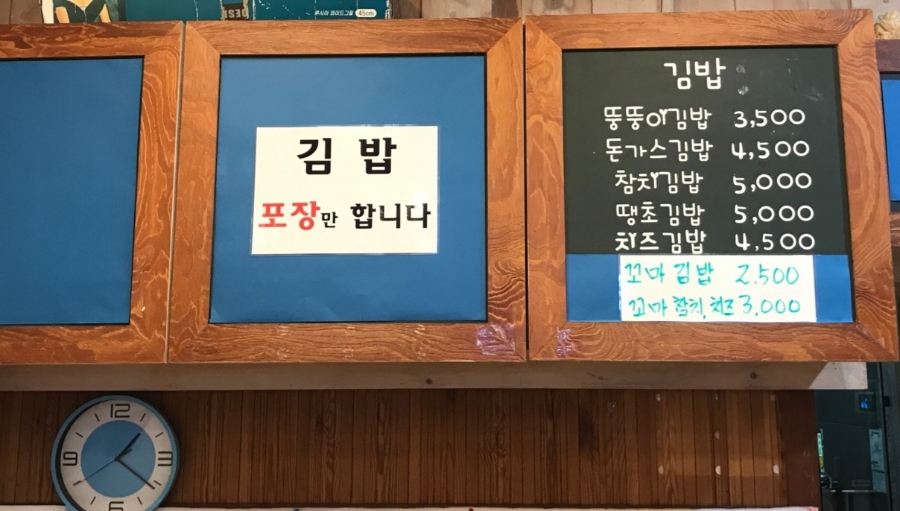 DESI
루시아 와이드그릴 45cm
김밥
포장만 합니다
김밥
뚱뚱이김밥 3,500
돈가스김밥 4,500
참치김밥 5,000
땡초김밥 5,000
치즈김밥 4,500
꼬마김밥 2.500
꼬마참치,치즈 3,000
12
3
9